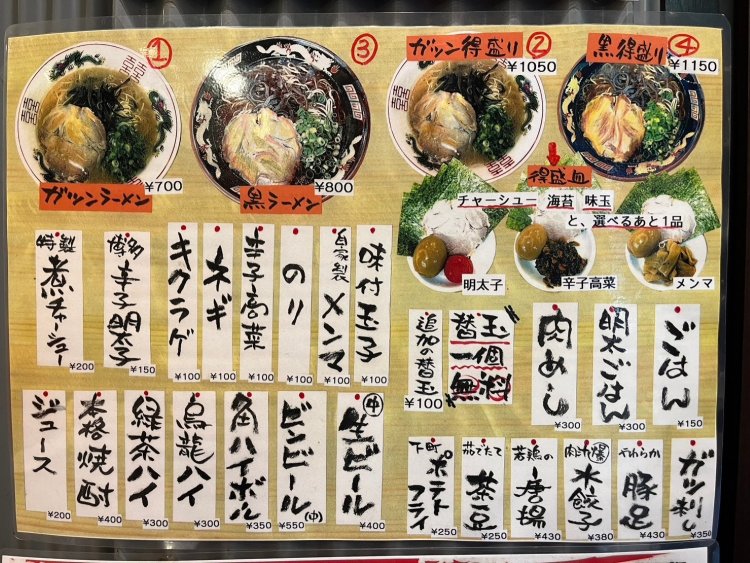 ①
ガツンラーメン
¥700
③
黒ラーメン
¥800
ガツン得盛り②
¥1050
黒得盛り④
¥1150
得盛皿
チャーシュー 海苔 味玉
と、選べるあと1品
明太子
辛子高菜
メンマ
味付玉子
¥100
自家製
メンマ
¥100
のり
¥100
辛子高菜
¥100
ネギ
¥100
キクラゲ
¥100
博多
辛子明太子
¥150
特製
煮チャーシュー
¥200
ごはん
¥150
明太ごはん
¥300
肉めし
¥300
替玉
一個
無料
追加の替玉
¥100
生ビール
(中)
¥400
ビンビール
(中)
¥550
角ハイボール
¥350
烏龍ハイ
¥300
緑茶ハイ
¥300
本格焼酎
¥400
ジュース
¥200
ガツ刺し
¥350
やわらか
豚足
¥430
肉汁爆
水餃子
¥380
若鶏の
唐揚
¥430
茹でたて
茶豆
¥250
下町
ポテト
フライ
¥250